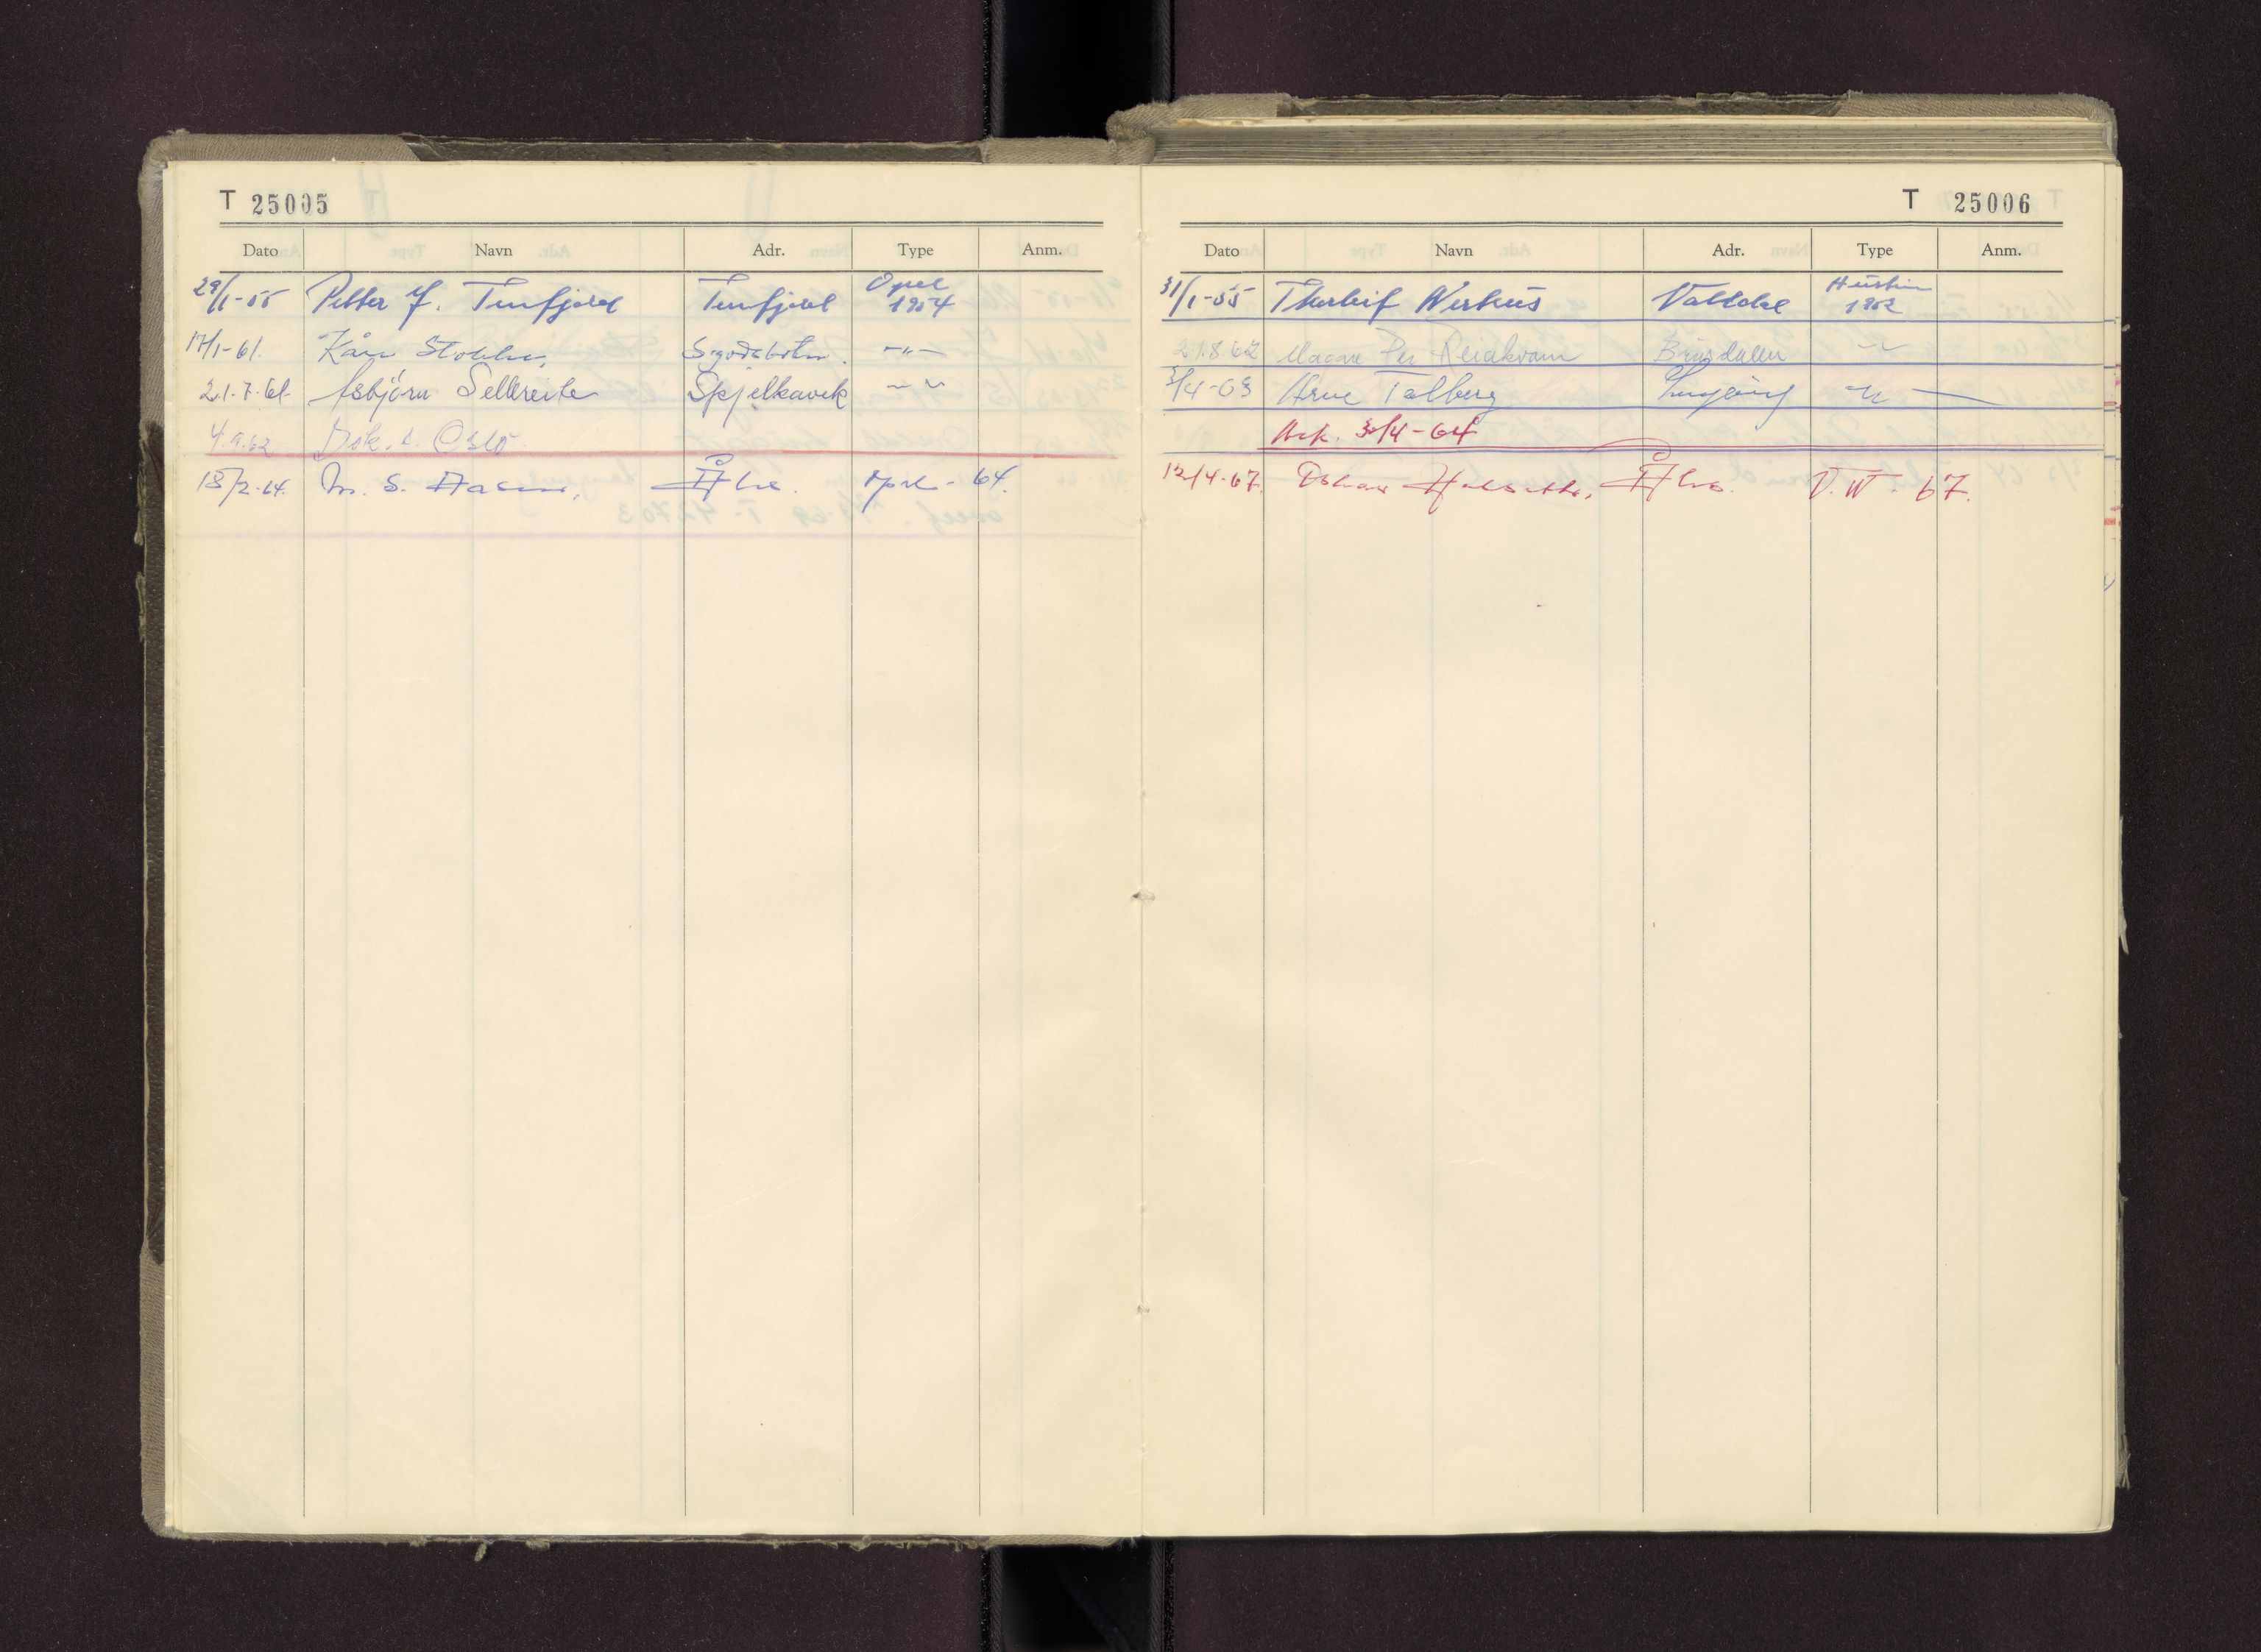 T 25005
Dato Navn Adr. Type Anm.
29/1-55 Petter J. Tennfjord Tennfjord Opel 1954
17/1-61. Kåre -"-
21.7.61. Asbjörn Sellereite Spjelkavik -"-
4.9.62 Oslo
18/2-64. M. S. Åse. Opel - 64.
T 25006
Dato Navn Adr. Type Anm.
31/1-55 Thorleif Valldal Austin 1952
21.8.62 Magne Per Reiakvam Brusdalen -"-
3/4-63 Arne Talberg -"-
Avk. 30/4-64
12/4-67. Oskar V.W. 67.